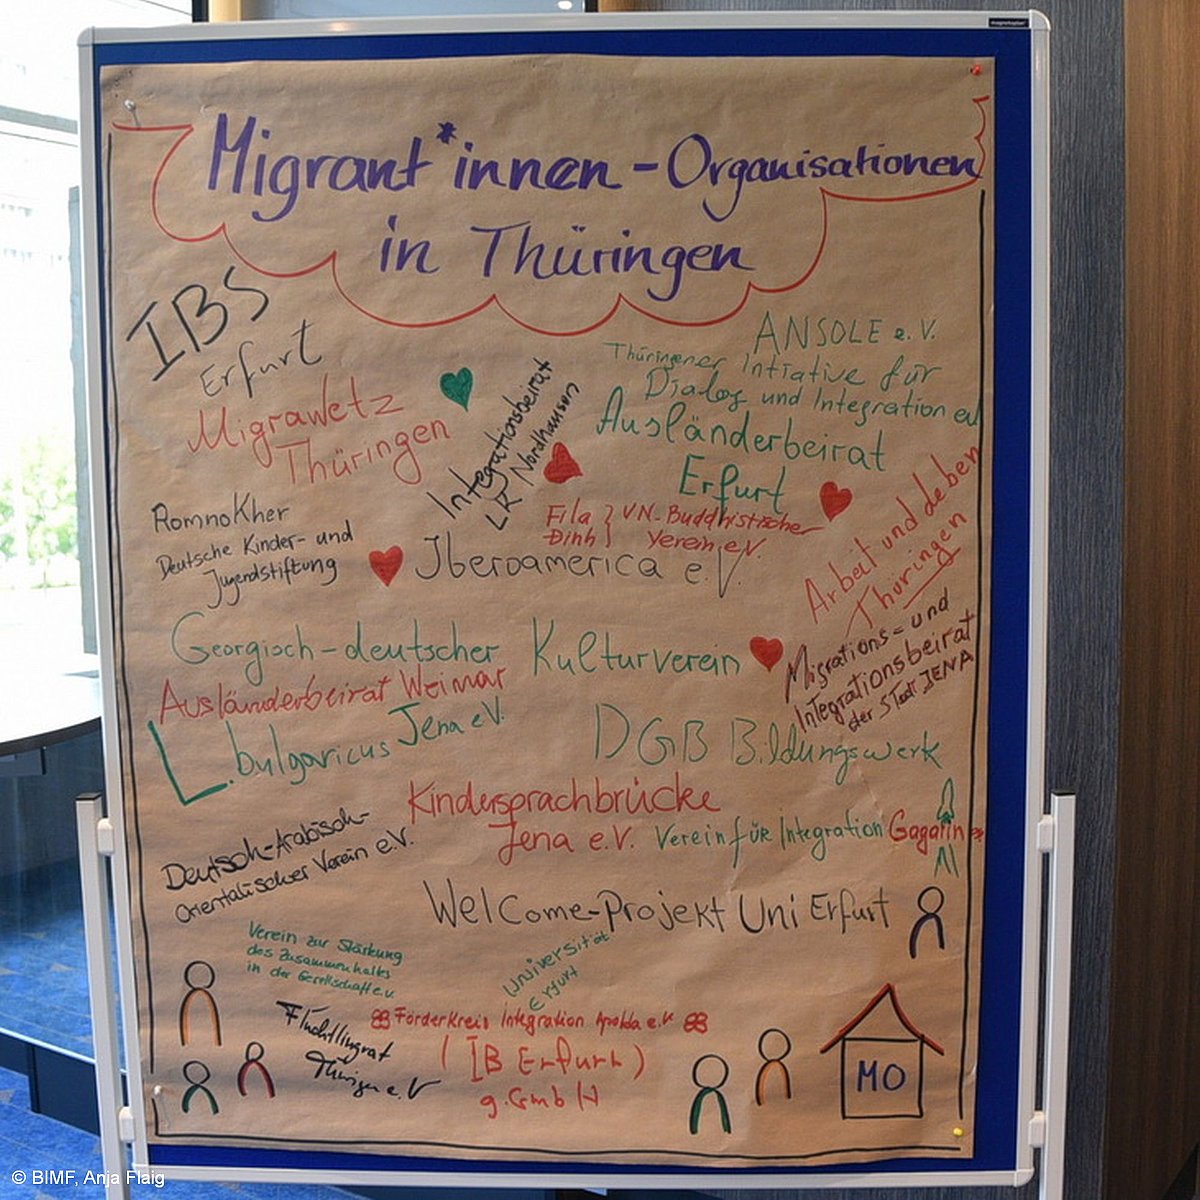 Migrant*innen-Organisationen
in Thüringen
IBS
Erfurt
Migrawetz
Thüringen
Integrationsbeirat
LK Nordhausen
ANSOLE e.V.
Thüringener Intiative für
Dialog und Integration e.V.
Ausländerbeirat
Erfurt
RomnoKher
Deutsche Kinder- und
Jugendstiftung
Fila } VN-Buddhistische
Đinh } Verein e.V.
Iberoamerica e.V.
Arbeit und Leben
Thüringen
Georgisch-deutscher Kulturverein
Migrations- und
Integrationsbeirat
der Stadt JENA
Ausländerbeirat Weimar
L. bulgaricus Jena e.V.
DGB Bildungswerk
Kindersprachbrücke
Jena e.V.
Verein für Integration Gagarin
Deutsch-Arabisch-
Orientalischer Verein e.V.
Welcome-Projekt Uni Erfurt
Verein zur Stärkung
des Zusammenhalts
in der Gesellschaft e.V.
Universität
Erfurt
Flüchtlingsrat
Thüringen e.V
Förderkreis Integration Apolda e.V
(IB Erfurt)
g.GmbH
MO
© BIMF, Anja Flaig